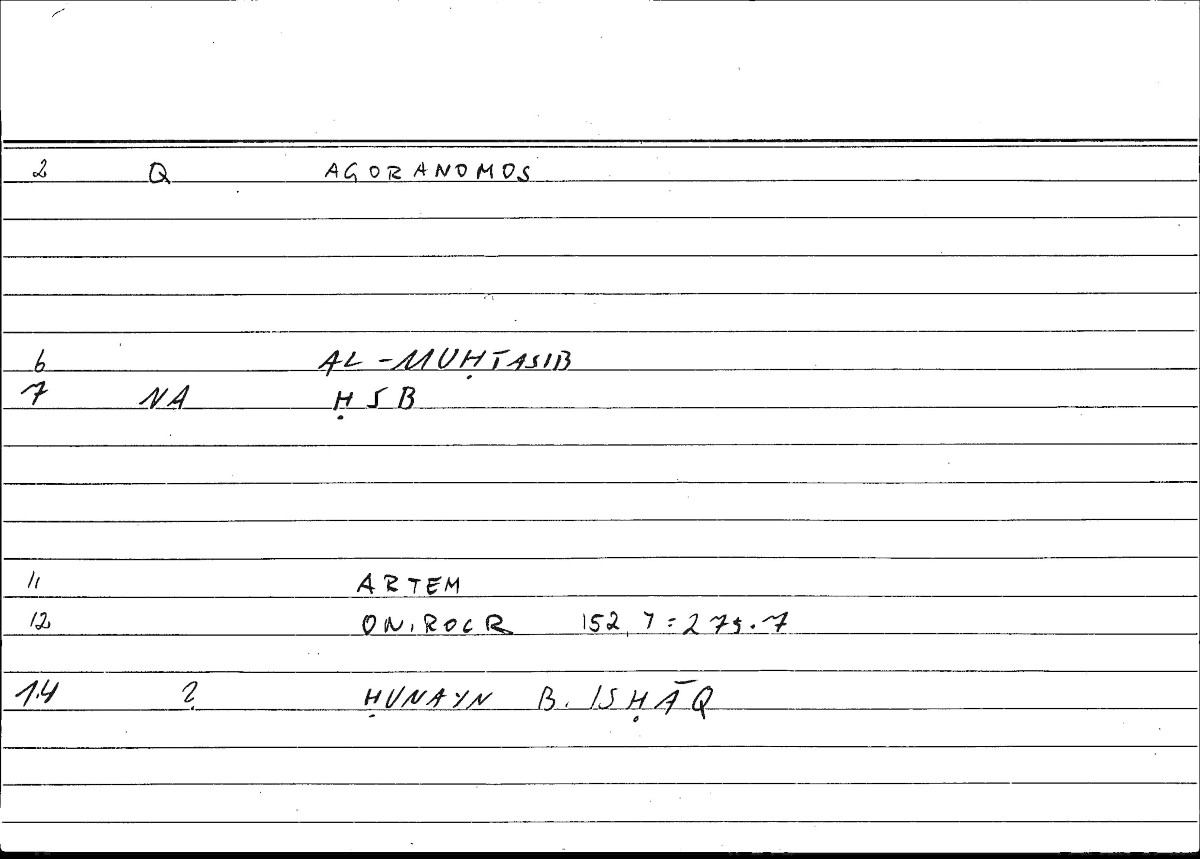 2 Q AGORANOMOS
6 AL-MUḤTASIB
7 NA ḤSB
11 ARTEM
12 ONIROCR 152,7=275.7
14 ? ḤUNAYN B. ISḤĀQ